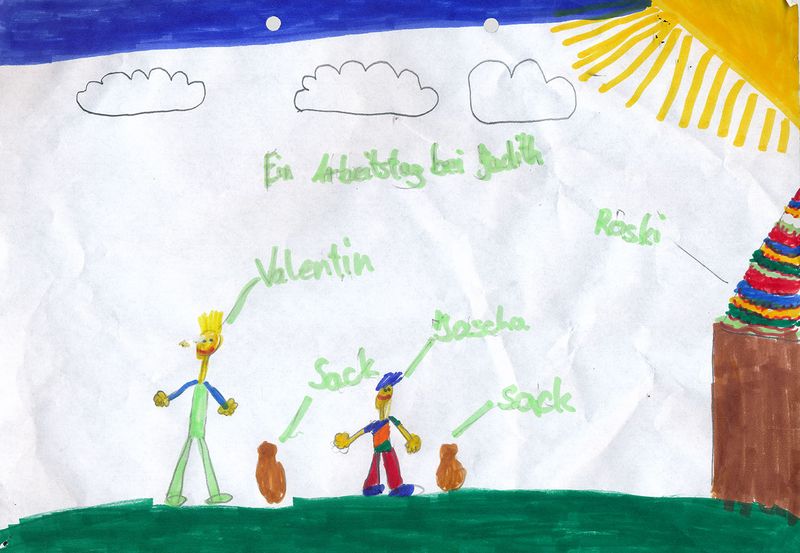 Ein Arbeitstag bei Judith
Röski
Valentin
Jascha
Sack
Sack